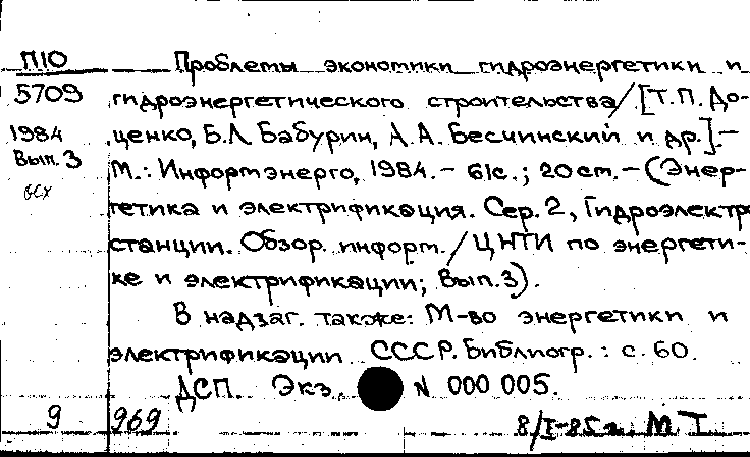 П10
5709
1984
Вып. 3
всх
Проблемы экономики гидроэнергетики и
гидроэнергетического строительства/[Т.П. До-
ценко, Б.Л. Бабурин, А.А. Бесчинский и др.].-
М.: Информэнерго, 1984.- 61с.; 20 см.-(Энер-
гетика и электрификация. Сер. 2, Гидроэлектро
станции. Обзор. информ./ЦНТИ по энергети-
ке и электрификации; Вып.3).
В надзаг. также: М-во энергетики и
электрификации СССР. Библиогр.: с. 60.
ДСП. Экз. N 000 005.
9 969 8/I-85г. М.Т.